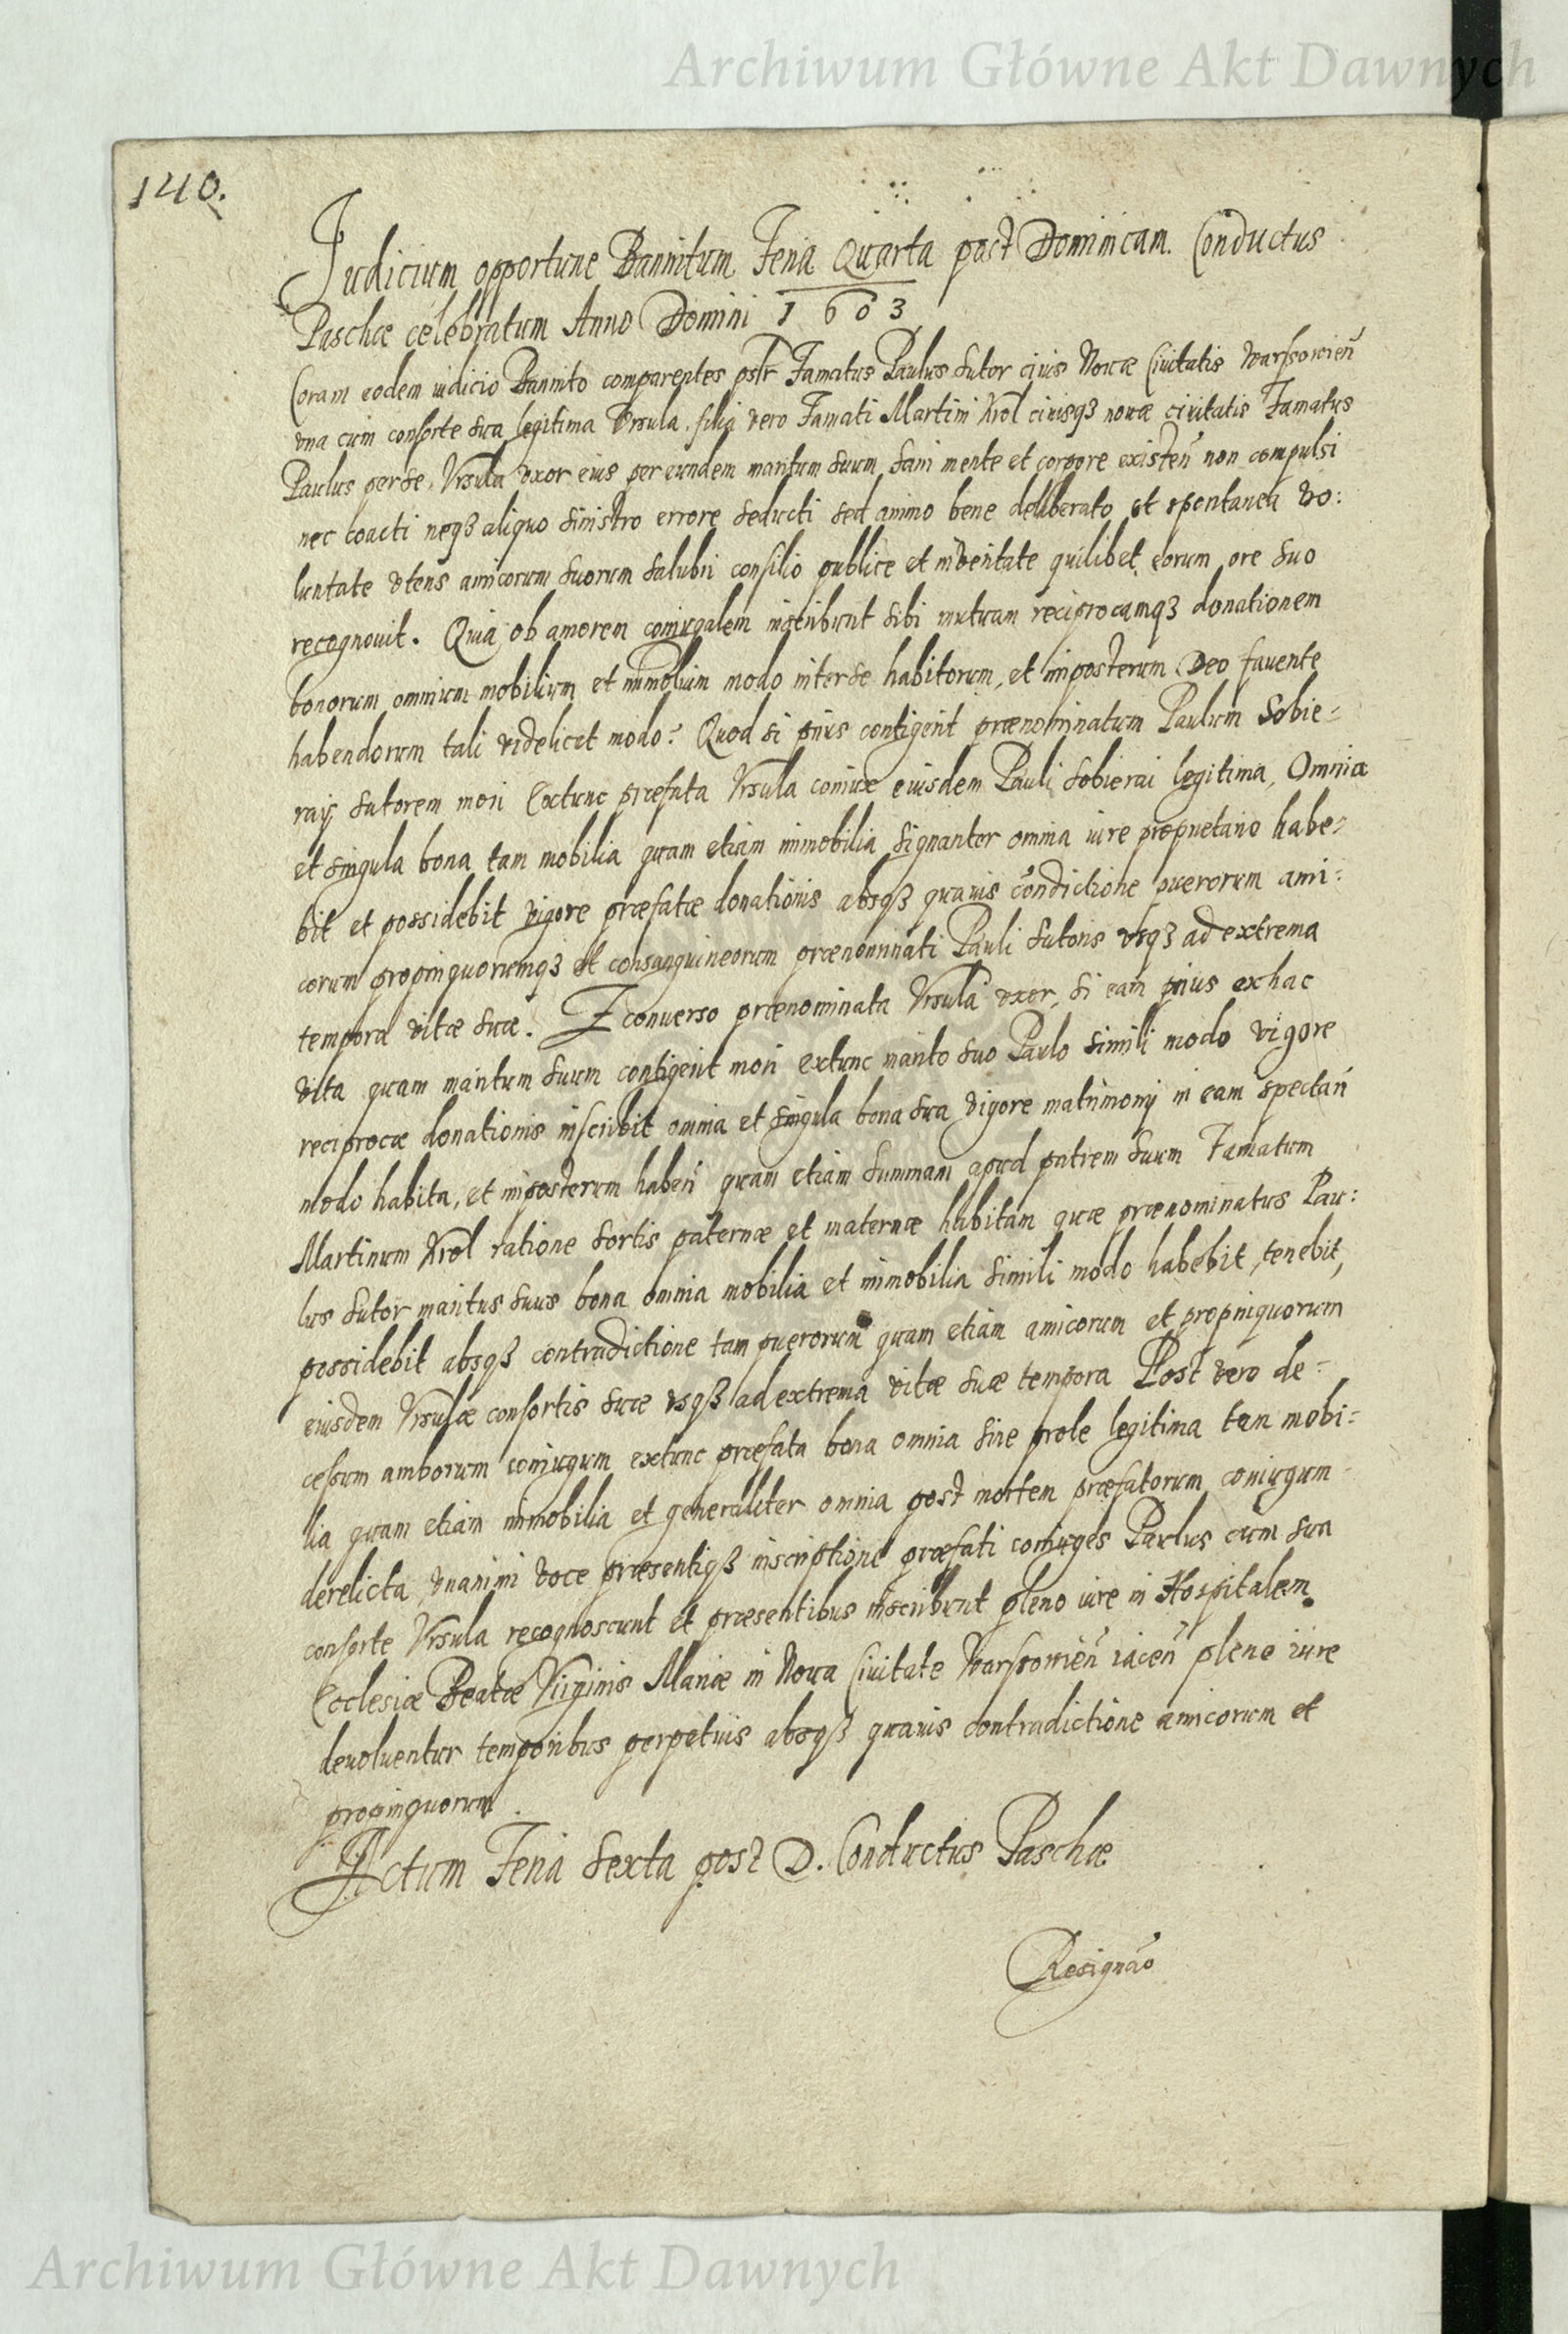 Archiwum Główne Akt Dawnych
140.
Judicium opportune Bannitum Feria Quarta post Dominicam Conductus
Paschæ celebratum Anno Domini 1603
Coram eodem iudicio Bannito comparentes pslr Famatus Paulus Sutor ciuis Nouæ Ciuitatis Warssouien̄
vna cum consorte sua legitima Vrsula, filia vero Famati Martini Krol ciuisqȝ nouæ ciuitatis Famatus
Paulus per se, Vrsula vxor eius per eundem maritum suum, sani mente et corpore existen̄ non compulsi
nec coacti neqȝ aliquo sinistro errore seducti sed animo bene deliberato et spontanea vo:
luntate vtens amicorum suorum salubri consilio publice et in veritate quilibet eorum ore suo
recognouit. Quia ob amorem coniugalem inscribunt sibi mutuam reciprocamqȝ donationem
bonorum omnium mobilium et immobilium modo inter se habitorum, et inposterum Deo fauente
habendorum tali videlicet modo: Quod si prius contigerit prænominatum Paulum Sobie=
raij sutorem mori Extunc præfata Vrsula coniux eiusdem Pauli Sobierai legitima, Omnia
et singula bona tam mobilia quam etiam immobilia signanter omnia iure proprietario habe=
bit et possidebit vigore præfatæ donationis absqȝ quauis condictione puerorum ami:
corum propinquorumqȝ et consanguineorum prænominati Pauli sutoris vsqȝ ad extrema
tempora vitæ suæ. E conuerso prænominata Vrsula vxor, si eam prius ex hac
vita quam maritum suum contigerit mori extunc marito suo Paulo simili modo vigore
reciprocæ donationis inscribit omnia et singula bona sua vigore matrimonij in eam spectan̄
modo habita, et inposterum haben̄ quam etiam summam apud patrem suum Famatum
Martinum Krol ratione sortis paternæ et maternæ habitam quæ prænominatus Pau:
lus sutor maritus suus bona omnia mobilia et immobilia simili modo habebit, tenebit,
possidebit absqȝ contradictione tam puerorum quam etiam amicorum et propinquorum
eiusdem Vrsulæ consortis suæ vsqȝ ad extrema vitæ suæ tempora Post vero de=
cessum amborum coniugum extunc præfata bona omnia sine prole legitima tam mobi=
lia quam etiam immobilia et generaliter omnia post mortem præfatorum coniugum
derelicta, vnanimi voce præsentiqȝ inscriptione præfati coniuges Paulus cum sua
consorte Vrsula recognoscunt et præsentibus inscribunt pleno iure in Hospitalem
Ecclesiæ Beatæ Virginis Mariæ in Noua Ciuitate Warssouien̄ iacen̄ pleno iure
deuoluentur temporibus perpetuis absqȝ quauis contradictione amicorum et
propinquorum.
Actum Feria Sexta post D. Conductus Paschæ
Resignāo
Archiwum Główne Akt Dawnych